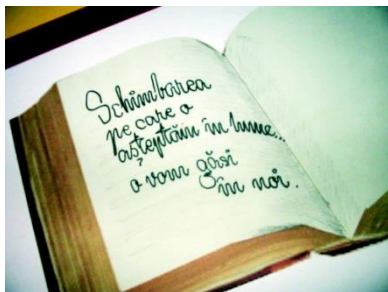 Schimbarea
pe care o
așteptăm în lume...
o vom găsi
în noi.